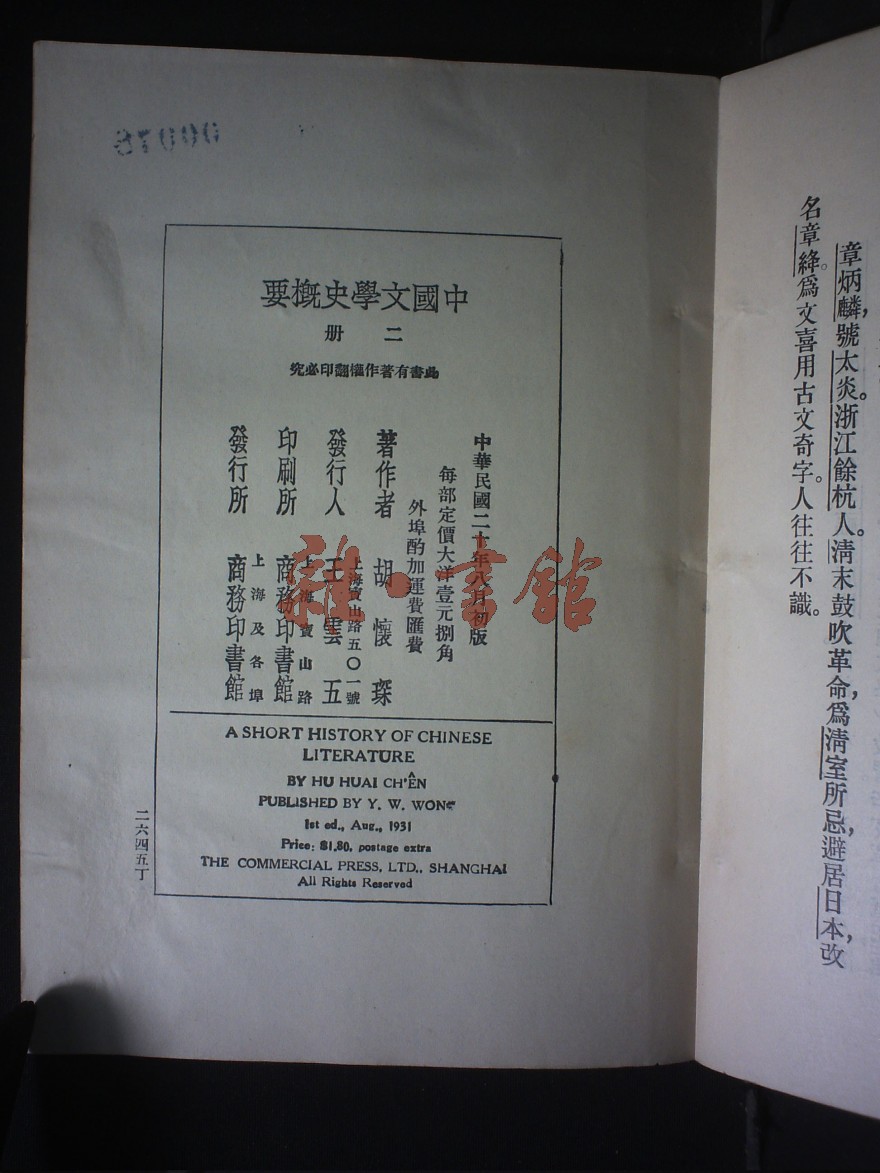 章炳麟,號太炎。浙江餘杭人。淸末鼓吹革命,爲淸室所忌,避居日本,改
名章絳。爲文喜用古文奇字。人往往不識。
中國文學史槪要
二册
此書有著作權翻印必究
中華民國二十年八月初版
每部定價大洋壹元捌角
外埠酌加運費匯費
著作者 胡懷琛
發行人 王雲五
上海寶山路五〇一號
印刷所 商務印書館
上海寶山路
發行所 商務印書館
上海及各埠
A SHORT HISTORY OF CHINESE
LITERATURE
BY HU HUAI CH'ÊN
PUBLISHED BY Y. W. WONG
1st ed., Aug., 1931
Price: $1.80, postage extra
THE COMMERCIAL PRESS, LTD., SHANGHAI
All Rights Reserved
二六四五丁
雜·書館